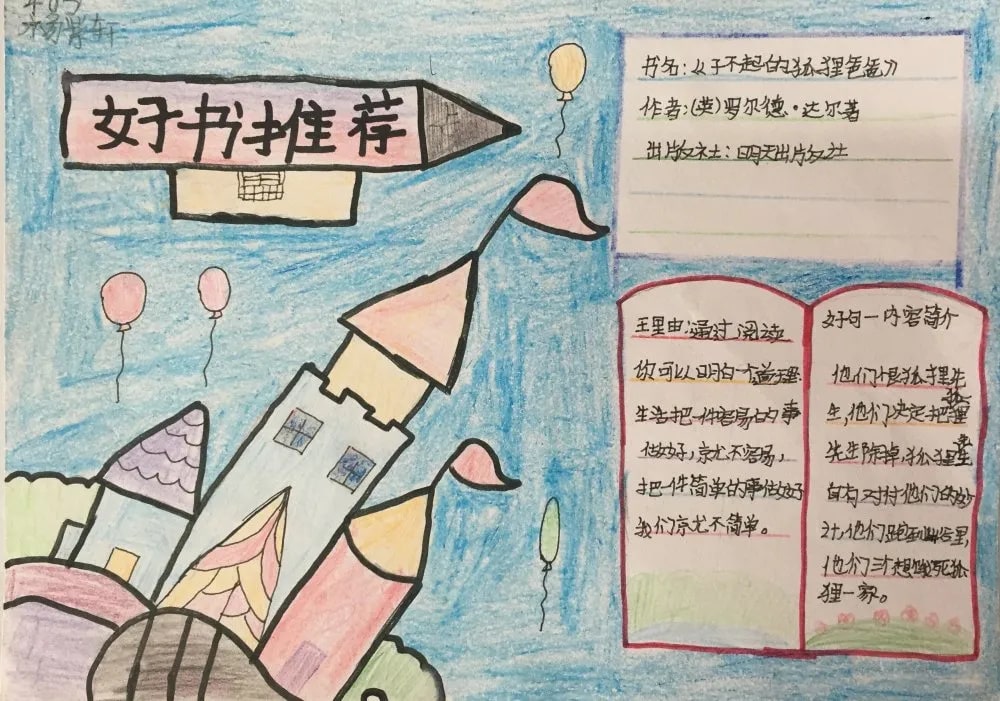 好书推荐
书名:《了不起的狐狸爸爸》
作者:(英)罗尔德·达尔著
出版社:明天出版社
理由:通过阅读
你可以明白一个道理:
生活把一件容易的事
做好,就不容易,
把一件简单的事做好
我们就不简单。
好句一内容简介
他们恨狐狸先
生,他们决定把狐狸
先生除掉,狐狸先生
自有对付他们的妙
计,他们跑到
他们三个想饿死狐
狸一家。